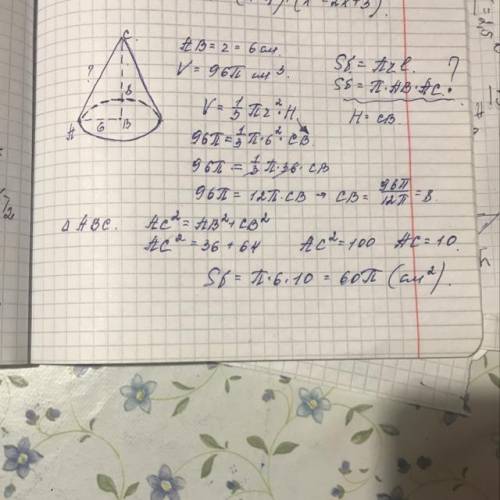 AB = r = 6 см.
V = 96π см³.
Sб = πrl. ?
Sб = π·AB·AC.
H = CB.
V = 1/3 πr²·H
96π = 1/3 π·6²·CB
96π = 1/3 π·36·CB
96π = 12π·CB → CB = 96π/12π = 8
C
?
8
A
6
B
△ ABC. AC² = AB² + CB²
AC² = 36 + 64 AC² = 100 AC = 10.
Sб = π·6·10 = 60π (см²).